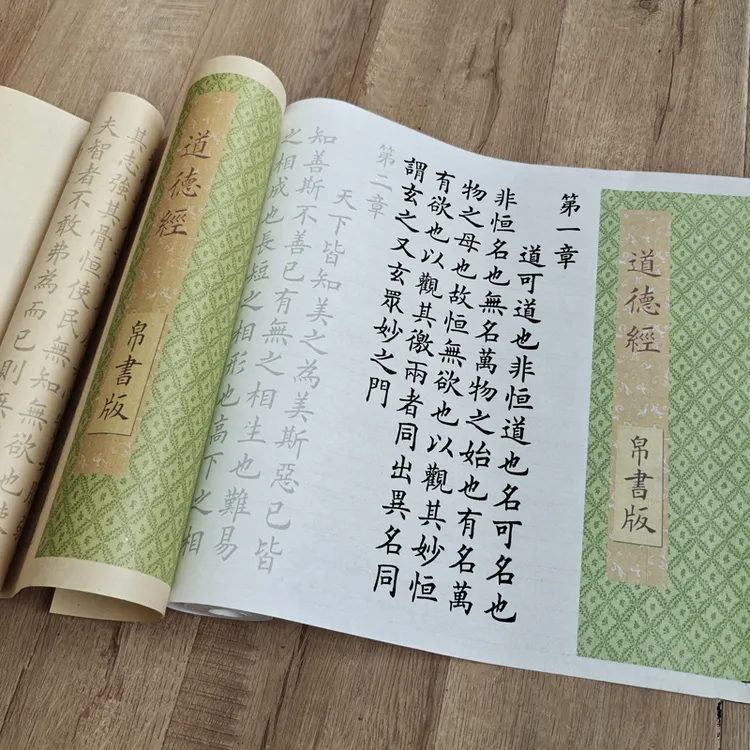 道德經
帛書版
第一章
道可道也非恒道也名可名也
非恒名也無名萬物之始也有名萬
物之母也故恒無欲也以觀其妙恒
有欲也以觀其徼兩者同出異名同
謂玄之又玄眾妙之門
第二章
天下皆知美之為美斯惡已皆
知善斯不善已有無之相生也難易
之相成也長短之相形也高下之相
道德經
帛書版
其志強其骨恒使民無知無欲也使
夫智者不敢弗為而已則無